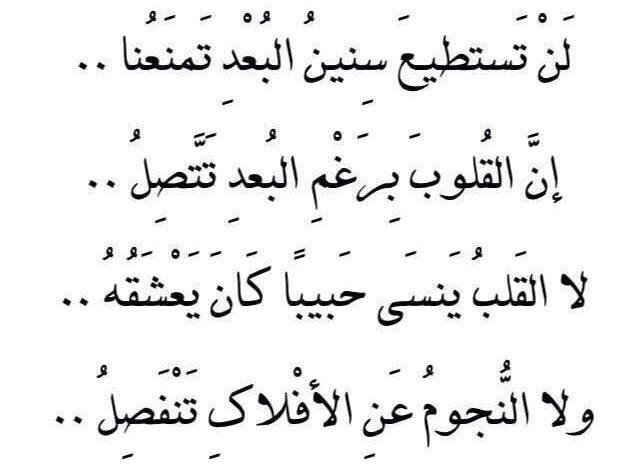 لَنْ تَستطيعَ سِنينُ البُعْدِ تَمنَعُنا ..
إنَّ القُلوبَ بِرَغْمِ البُعدِ تَتَّصِلُ ..
لا القَلبُ يَنسَى حَبيبًا كَانَ يَعْشَقُهُ ..
ولا النُّجومُ عَنِ الأفْلاكِ تَنْفَصِلُ ..